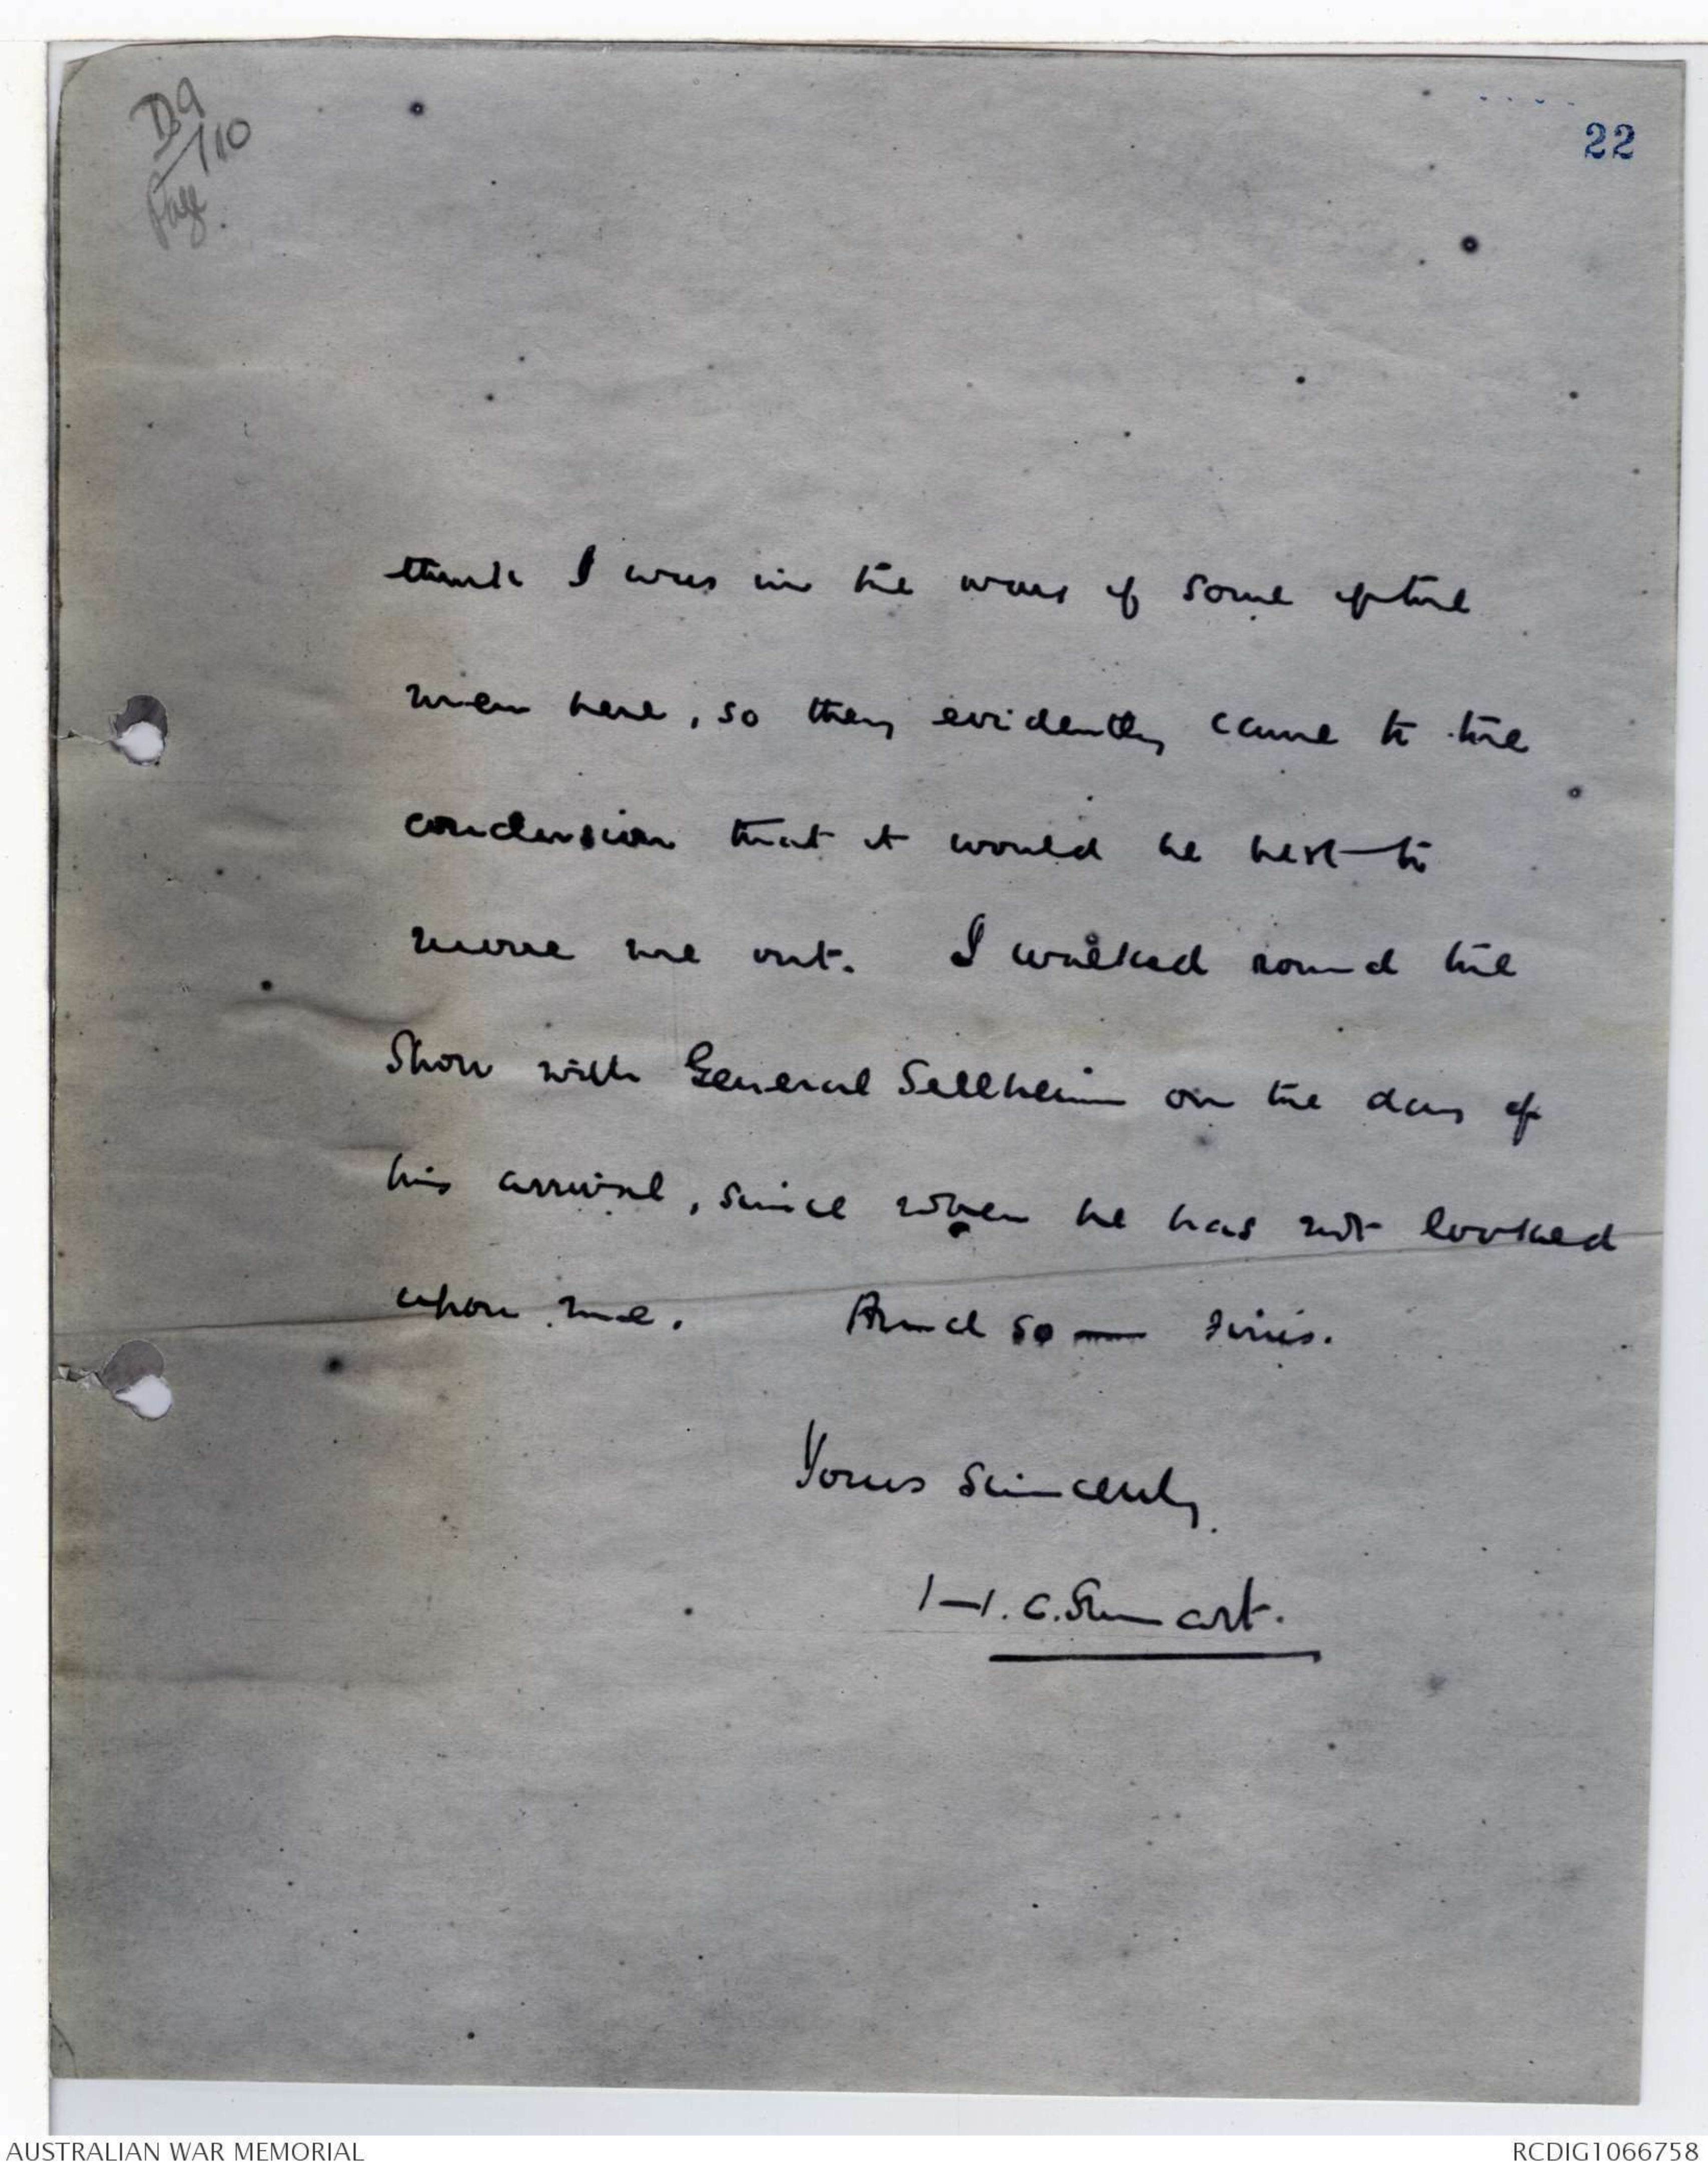 D9
/110
Page
22
think I was in the way of some of the
men here, so they evidently came to the
conclusion that it would be best to
move me out. I walked round the
Show with General Sellheim on the day of
his arrival, since when he has not looked
upon me. And so — finis.
Yours Sincerely,
H. C. Smart.
AUSTRALIAN WAR MEMORIAL
RCDIG1066758